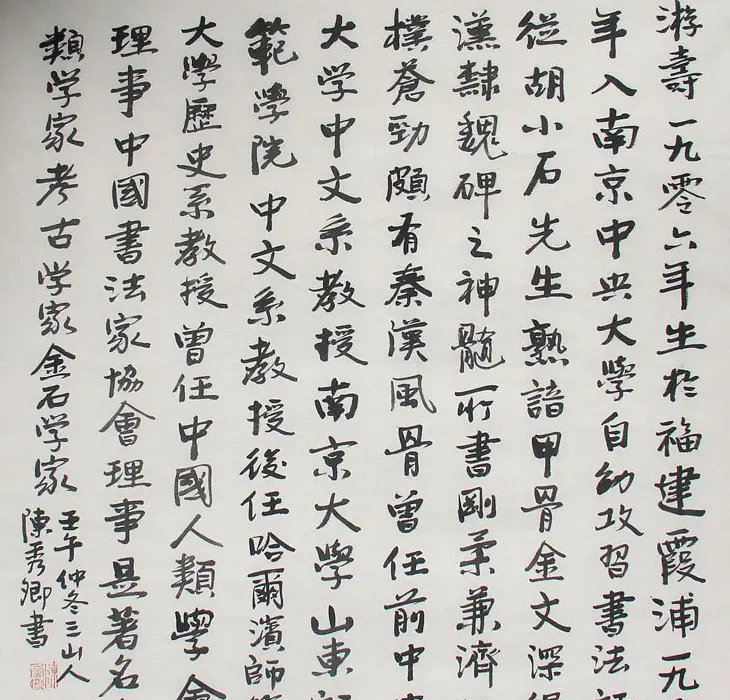 游壽一九零六年生於福建霞浦一九
年入南京中央大學自幼攻習書法
從胡小石先生熟諳甲骨金文深得
漢隸魏碑之神髓所書剛柔兼濟
樸蒼勁頗有秦漢風骨曾任前中
大学中文系教授南京大學山東
範學院中文系教授後任哈爾濱師範
大學歷史系教授曾任中國人類學会
理事中國書法家協會理事是著名
類学家考古学家金石学家
壬午仲冬三山人
陳秀卿書